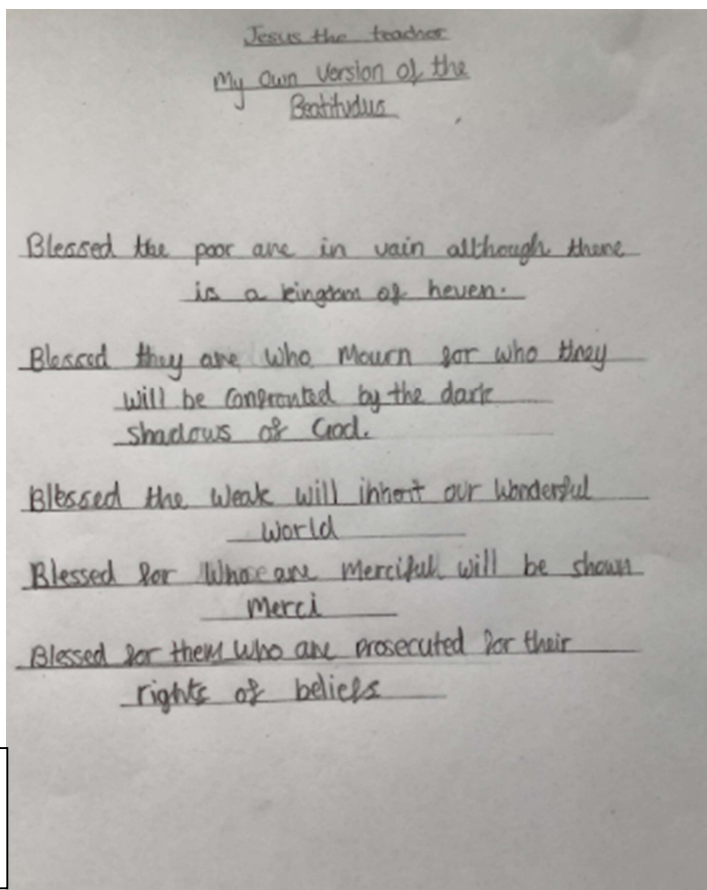 Jesus the teacher
My own version of the
Beatitudus
Blessed the poor are in vain although there
is a kingdom of heven.
Blessed they are who mourn for who they
will be confronted by the dark
shadows of God.
Blessed the weak will inherit our wonderful
world
Blessed for who are merciful will be shown
merci
Blessed for them who are prosecuted for their
rights of beliefs